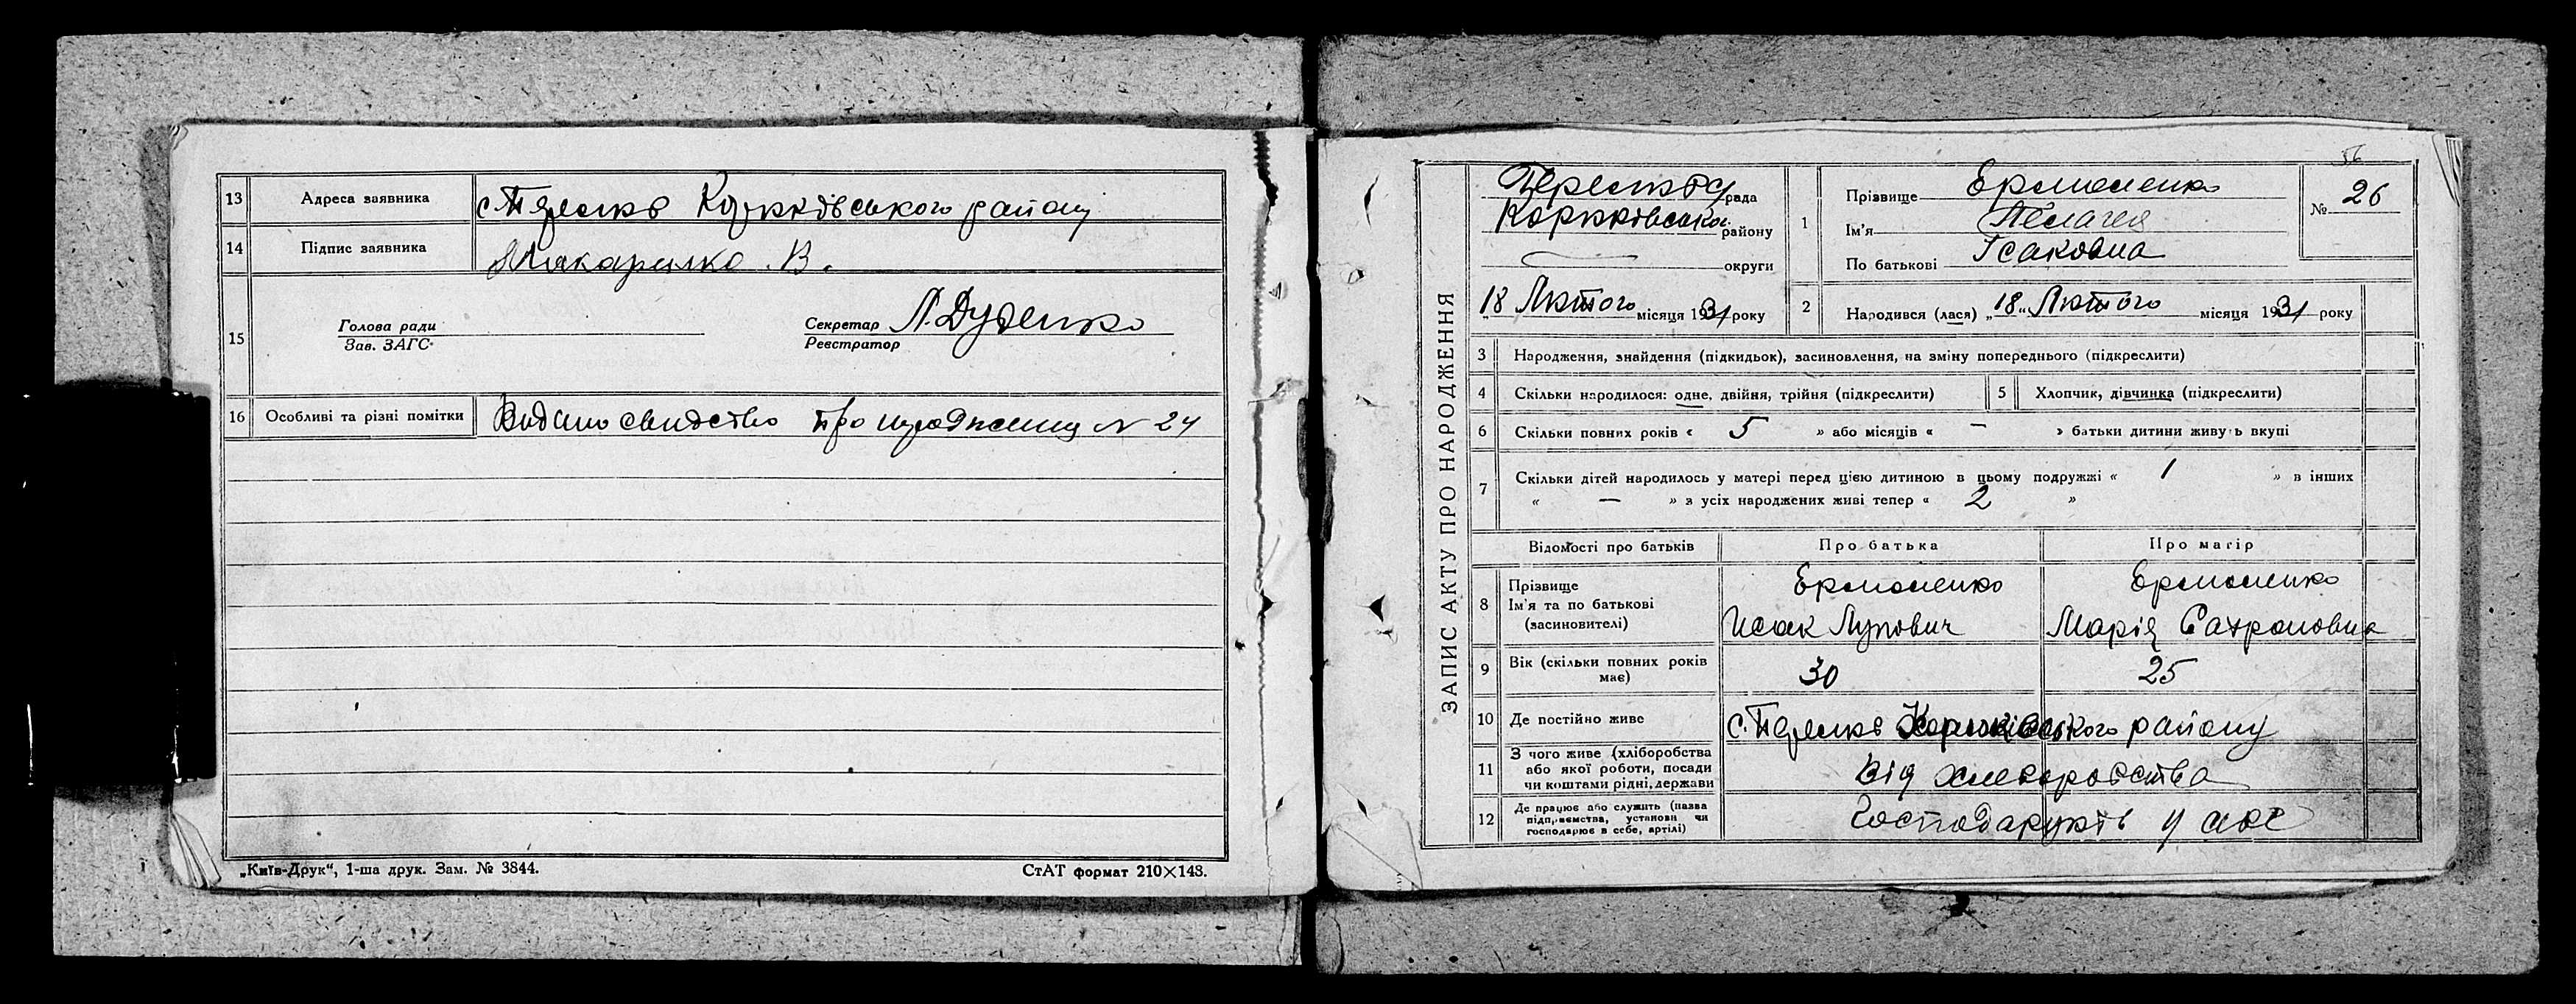 13 Адреса заявника с. Коржківського району
14 Підпис заявника Макаренко. В.
15 Голова ради
Зав. ЗАГС
Секретар Л. Дуденко
Реєстратор
16 Особливі та різні помітки Видано свидство про народження N 24
„Київ-Друк“, 1-ша друк. Зам. № 3844.
СтАТ формат 210×143.
ЗАПИС АКТУ ПРО НАРОДЖЕННЯ
56
рада
району
округи
18 Лютого місяця 1931 року
1 Прізвище Ермоленко
Ім'я Пелагея
По батькові Ісаковна
№ 26
2 Народився (лася) „18“ Лютого місяця 1931 року
3 Народження, знайдення (підкидьок), засиновлення, на зміну попереднього (підкреслити)
4 Скільки народилося: одне, двійня, трійня (підкреслити)
5 Хлопчик, дівчинка (підкреслити)
6 Скільки повних років « 5 » або місяців « — » батьки дитини живуть вкупі
7 Скільки дітей народилось у матері перед цією дитиною в цьому подружжі « 1 » в інших
« — » з усіх народжених живі тепер « 2 »
Відомості про батьків
Про батька
Про матір
8 Прізвище
Ім'я та по батькові
(засиновителі)
Ермоленко
Исак Лупович
Ермоленко
Марія Сахроновна
9 Вік (скільки повних років має)
30
25
10 Де постійно живе с. району
11 З чого живе (хліборобства
або якої роботи, посади
чи коштами рідні, держави
Від хлеборобства
12 Де працює або служить (назва
підприємства, установи чи
господарює в себе, артілі)
Господарують у